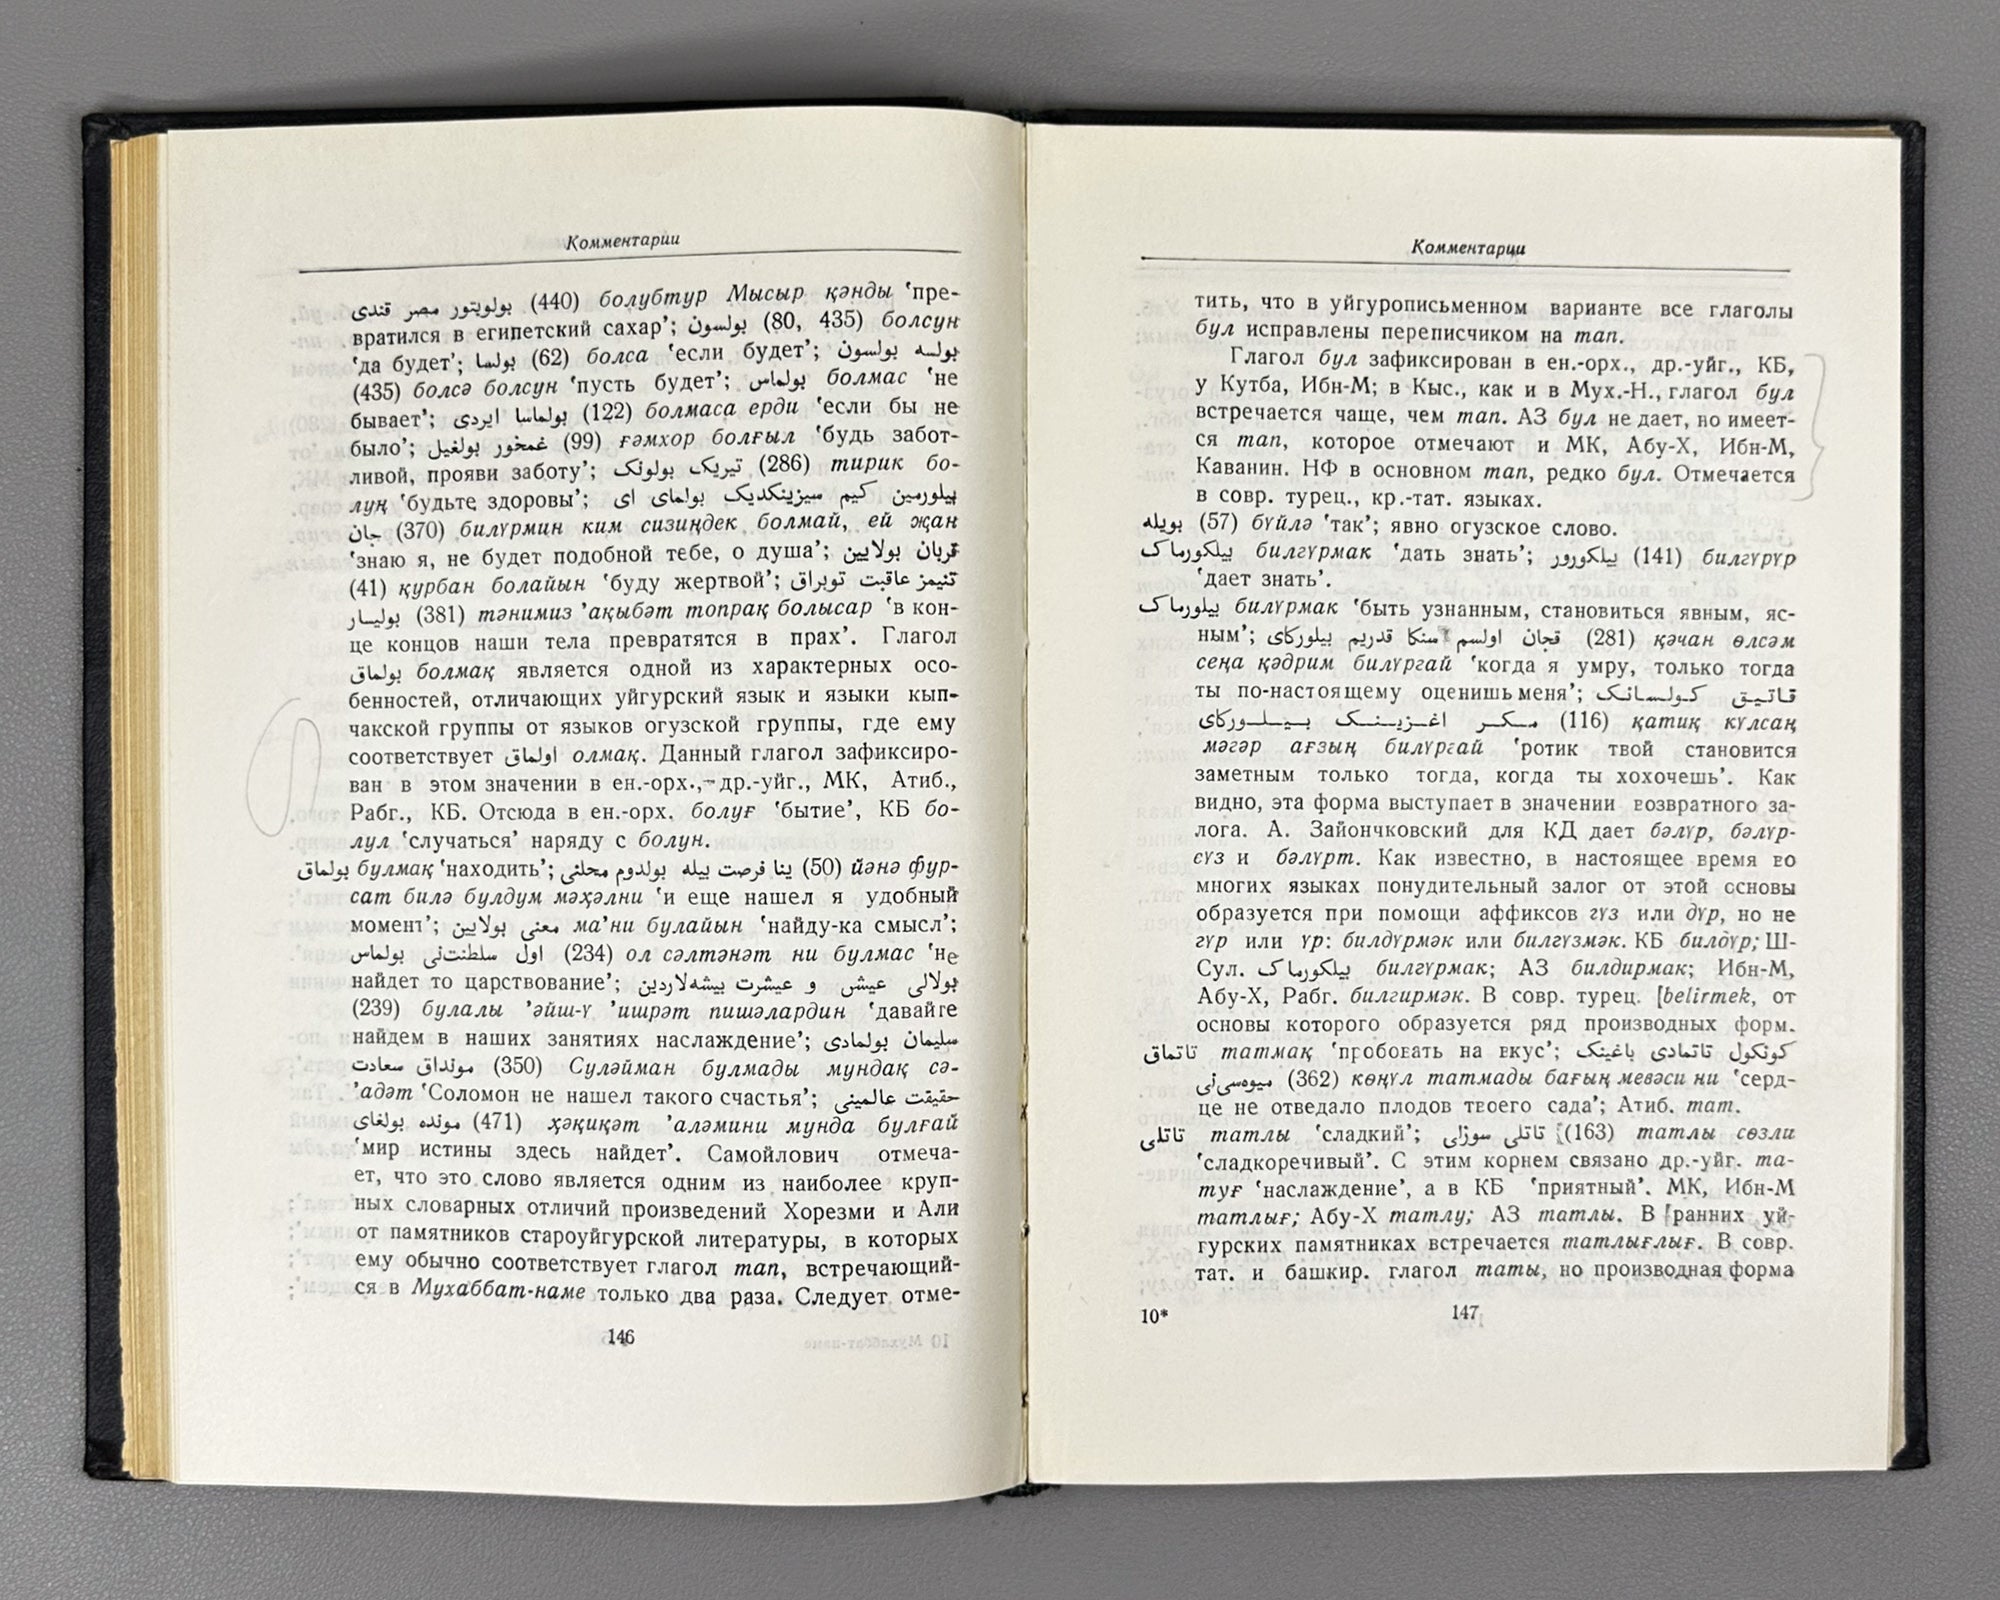 Комментарии
بولوبتور مصر قندی (440) болубтур Мысыр қәнды ‘пре-
вратился в египетский сахар’; بولسون (80, 435) болсун
‘да будет’; بولسا (62) болса ‘если будет’; بولسه بولسون
(435) болсә болсун ‘пусть будет’; بولماس болмас ‘не
бывает’; بولماسا ایردی (122) болмаса ерди ‘если бы не
было’; غمخور بولغیل (99) ғәмхор болғыл ‘будь забот-
ливой, прояви заботу’; تیریک بولونک (286) тирик бо-
луң ‘будьте здоровы’; بیلورمین کیم سیزینکدیک بولمای ای
جان (370) билүрмин ким сизиңдек болмай, ей җан
‘знаю я, не будет подобной тебе, о душа’; قربان بولایین
(41) қурбан болайын ‘буду жертвой’; تنیمز عاقبت توبراق
بولیسار (381) тәнимиз ’ақыбәт топрақ болысар ‘в кон-
це концов наши тела превратятся в прах’. Глагол
بولماق болмақ является одной из характерных осо-
бенностей, отличающих уйгурский язык и языки кып-
чакской группы от языков огузской группы, где ему
соответствует اولماق олмақ. Данный глагол зафиксиро-
ван в этом значении в ен.-орх., др.-уйг., МК, Атиб.,
Рабг., КБ. Отсюда в ен.-орх. болуғ ‘бытие’, КБ бо-
лул ‘случаться’ наряду с болун.
بولماق булмақ ‘находить’; ینا فرصت بیله بولدوم محلنی (50) йәнә фур-
сат билә булдум мәҳәлни ‘и еще нашел я удобный
момент’; معنی بولایین ма’ни булайын ‘найду-ка смысл’;
اول سلطنت‌نی بولماس (234) ол сәлтәнәт ни булмас ‘не
найдет то царствование’; بولالی عیش و عیشرت بیشه‌لاردین
(239) булалы ’әйш-ү ’ишрәт пишәлардин ‘давайте
найдем в наших занятиях наслаждение’; سلیمان بولمادی
مونداق سعادت (350) Суләйман булмады мундақ сә-
’адәт ‘Соломон не нашел такого счастья’; حقیقت عالمینی
مونده بولغای (471) ҳәқиқәт ’аләмини мунда булғай
‘мир истины здесь найдет’. Самойлович отмеча-
ет, что это слово является одним из наиболее круп-
ных словарных отличий произведений Хорезми и Али
от памятников староуйгурской литературы, в которых
ему обычно соответствует глагол тап, встречающий-
ся в Мухаббат-наме только два раза. Следует отме-
146
Комментарии
тить, что в уйгурописьменном варианте все глаголы
бул исправлены переписчиком на тап.
Глагол бул зафиксирован в ен.-орх., др.-уйг., КБ,
у Кутба, Ибн-М; в Кыс., как и в Мух.-Н., глагол бул
встречается чаще, чем тап. АЗ бул не дает, но имеет-
ся тап, которое отмечают и МК, Абу-Х, Ибн-М,
Каванин. НФ в основном тап, редко бул. Отмечается
в совр. турец., кр.-тат. языках.
بویله (57) бүйлә ‘так’; явно огузское слово.
بیلکورماک билгүрмак ‘дать знать’; بیلکورور (141) билгүрүр
‘дает знать’.
بیلورماک билүрмак ‘быть узнанным, становиться явным, яс-
ным’; قجان اولسم سنکا قدریم بیلورکای (281) қәчан өлсәм
сеңа қәдрим билүргай ‘когда я умру, только тогда
ты по-настоящему оценишь меня’; قاتیق کولسانک
مکر اغزینک بیلورکای (116) қатиқ күлсаң
мәгәр ағзың билүргай ‘ротик твой становится
заметным только тогда, когда ты хохочешь’. Как
видно, эта форма выступает в значении возвратного за-
лога. А. Зайончковский для КД дает бәлүр, бәлүр-
сүз и бәлүрт. Как известно, в настоящее время во
многих языках понудительный залог от этой основы
образуется при помощи аффиксов гүз или дүр, но не
гүр или үр: билдүрмәк или билгүзмәк. КБ билдүр; Ш-
Сул. بیلکورماک билгүрмак; АЗ билдирмак; Ибн-М,
Абу-Х, Рабг. билгирмәк. В совр. турец. [belirmek, от
основы которого образуется ряд производных форм.
تاتماق татмақ ‘пробовать на вкус’; کونکول تاتمادی باغینک
میوه‌سی‌نی (362) көңүл татмады бағың мевәси ни ‘серд-
це не отведало плодов твоего сада’; Атиб. тат.
تاتلی татлы ‘сладкий’; تاتلی سوزلی (163) татлы сөзли
‘сладкоречивый’. С этим корнем связано др.-уйг. та-
туғ ‘наслаждение’, а в КБ ‘приятный’. МК, Ибн-М
татлығ; Абу-Х татлу; АЗ татлы. В ранних уй-
гурских памятниках встречается татлығлығ. В совр.
тат. и башкир. глагол таты, но производная форма
10*
147